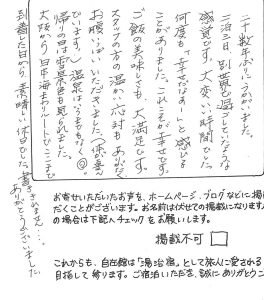 二十数年ぶりにうかがいました。
二泊三日、別荘で過ごしているような
感覚です。大変いい時間でした。
何度も「幸せだなぁ〜」と感じる
ことがありました。これこそが幸せです。
ご飯も美味しくても、大満足です。
スタッフの方の温かい応対も
お腹いっぱいいただきました。
でいます)温泉はいうまでもなく◎
帰りの日は雪景色も見られました。
大阪から日本海まわりルートで
到着した日から、素晴しい休日でした。書ききれません…。
ありがとうございました
お寄せいただいたお声を、ホームページ、ブログなどに掲
だくことがございます。お名前は伏せての掲載になります
の場合は下記へチェックをお願いします。
掲載不可 □
これからも、自在館は「湯治宿」として旅人に愛される
目指して参ります。ご宿泊いただき、誠にありがとうご